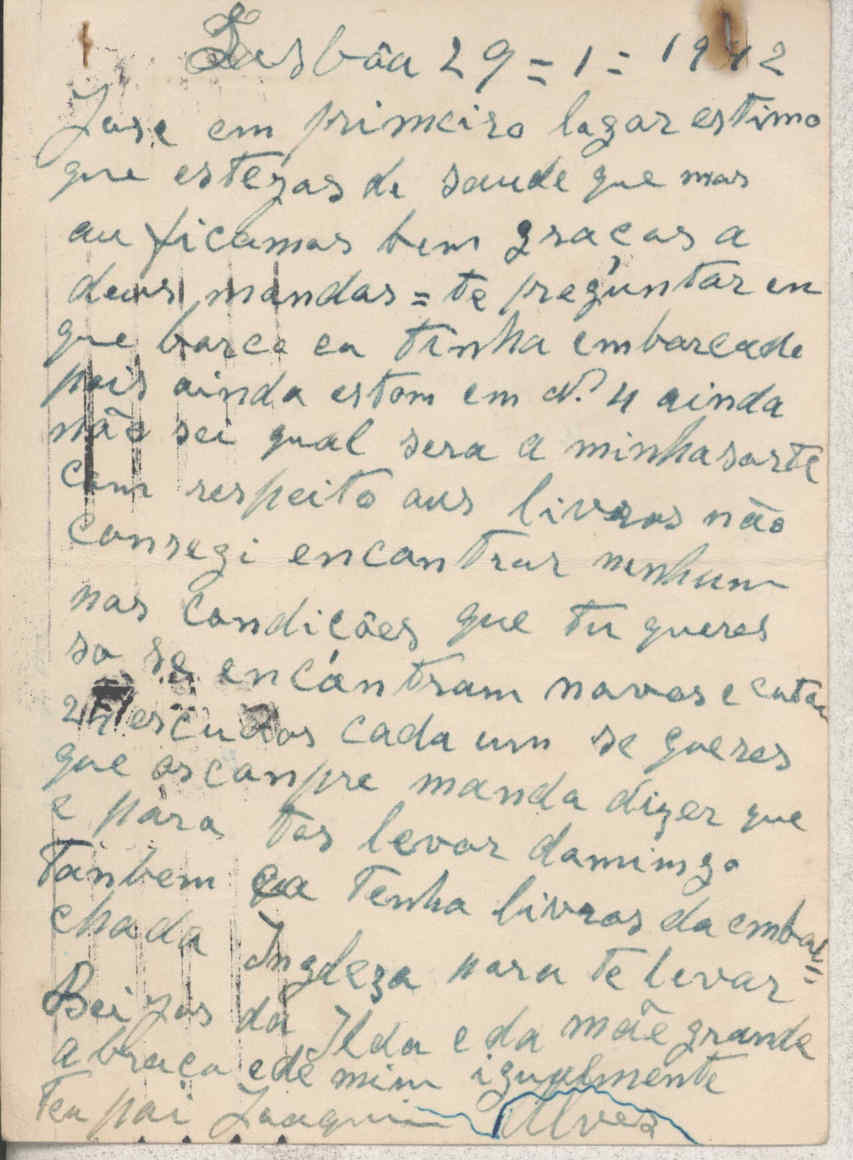 Lisbôa 29=1=1942
Jose em primeiro logar estimo
que estejas de saude que nos
cu ficamos bem graças a
deus mandas=te preguntar en
que barco eu tinha embarcado
pois ainda estom em N.º 4 ainda
não sei qual sera a minha sorte
com respeito aus livros não
consegi encontrar nenhum
nas condições que tu queres
so se encontram novos e
25 escudos cada um se queres
que os conpre manda dizer que
e para tos levar domimgo
Tanbem ca Tenho livros da embai=
chada Ingleza para te levar
Beijos da Ilda e da mãe grande
abraço e de mim igualmente
Teu pai Joaquim Alves